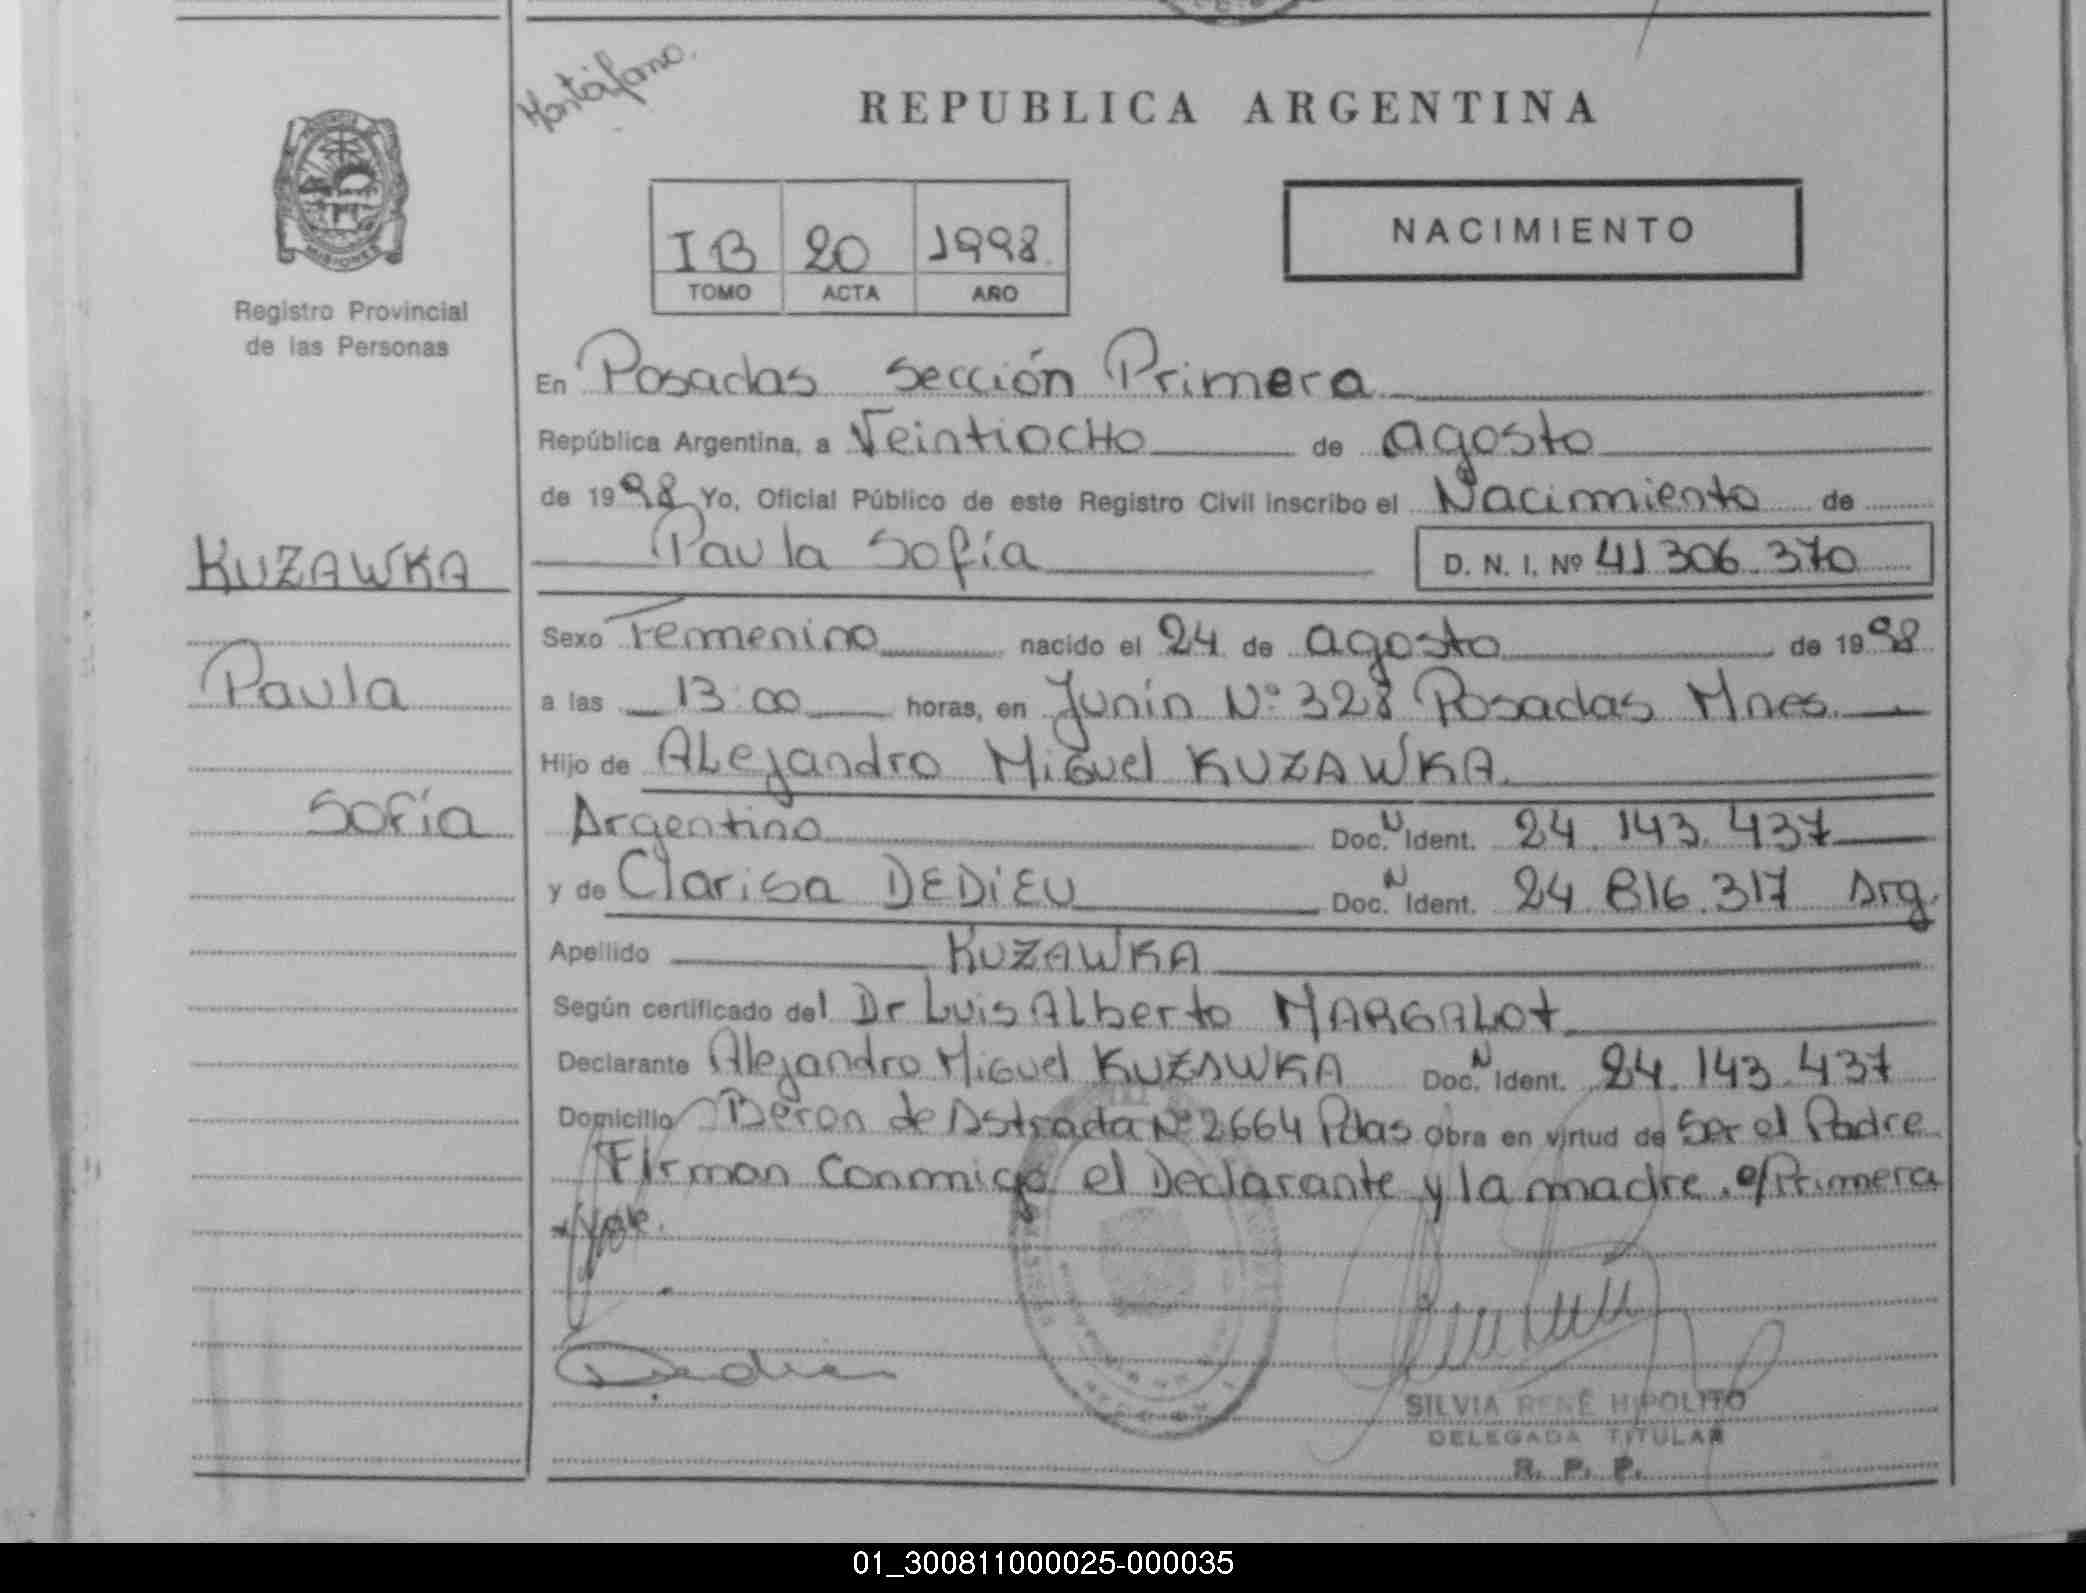 REPUBLICA ARGENTINA
MISIONES
Registro Provincial
de las Personas
IB 20 1998
TOMO ACTA AÑO
NACIMIENTO
KUZAWKA
Paula
Sofía
En Posadas Sección Primera
República Argentina, a Veintiocho de agosto
de 1998 Yo, Oficial Público de este Registro Civil inscribo el Nacimiento de
Paula Sofía D. N. I. Nº 41 306 370
Sexo Femenino nacido el 24 de agosto de 1998
a las 13:00 horas, en Junín Nº 328 Posadas Mnes.
Hijo de Alejandro Miguel KUZAWKA
Argentino Doc. N Ident. 24.143.437
y de Clarisa DEDIEU Doc. N Ident. 24.816.317 Arg.
Apellido KUZAWKA
Según certificado del Dr Luis Alberto MARGALOT
Declarante Alejandro Miguel KUZAWKA Doc. N Ident. 24.143.437
Domicilio Beron de Astrada Nº 2664 Pdas obra en virtud de Ser el Padre
Firman Conmigo el Declarante y la madre. e/Primera
Vale.
SILVIA RENÉ HIPOLITO
DELEGADA TITULAR
R. P. P.
01_300811000025-000035